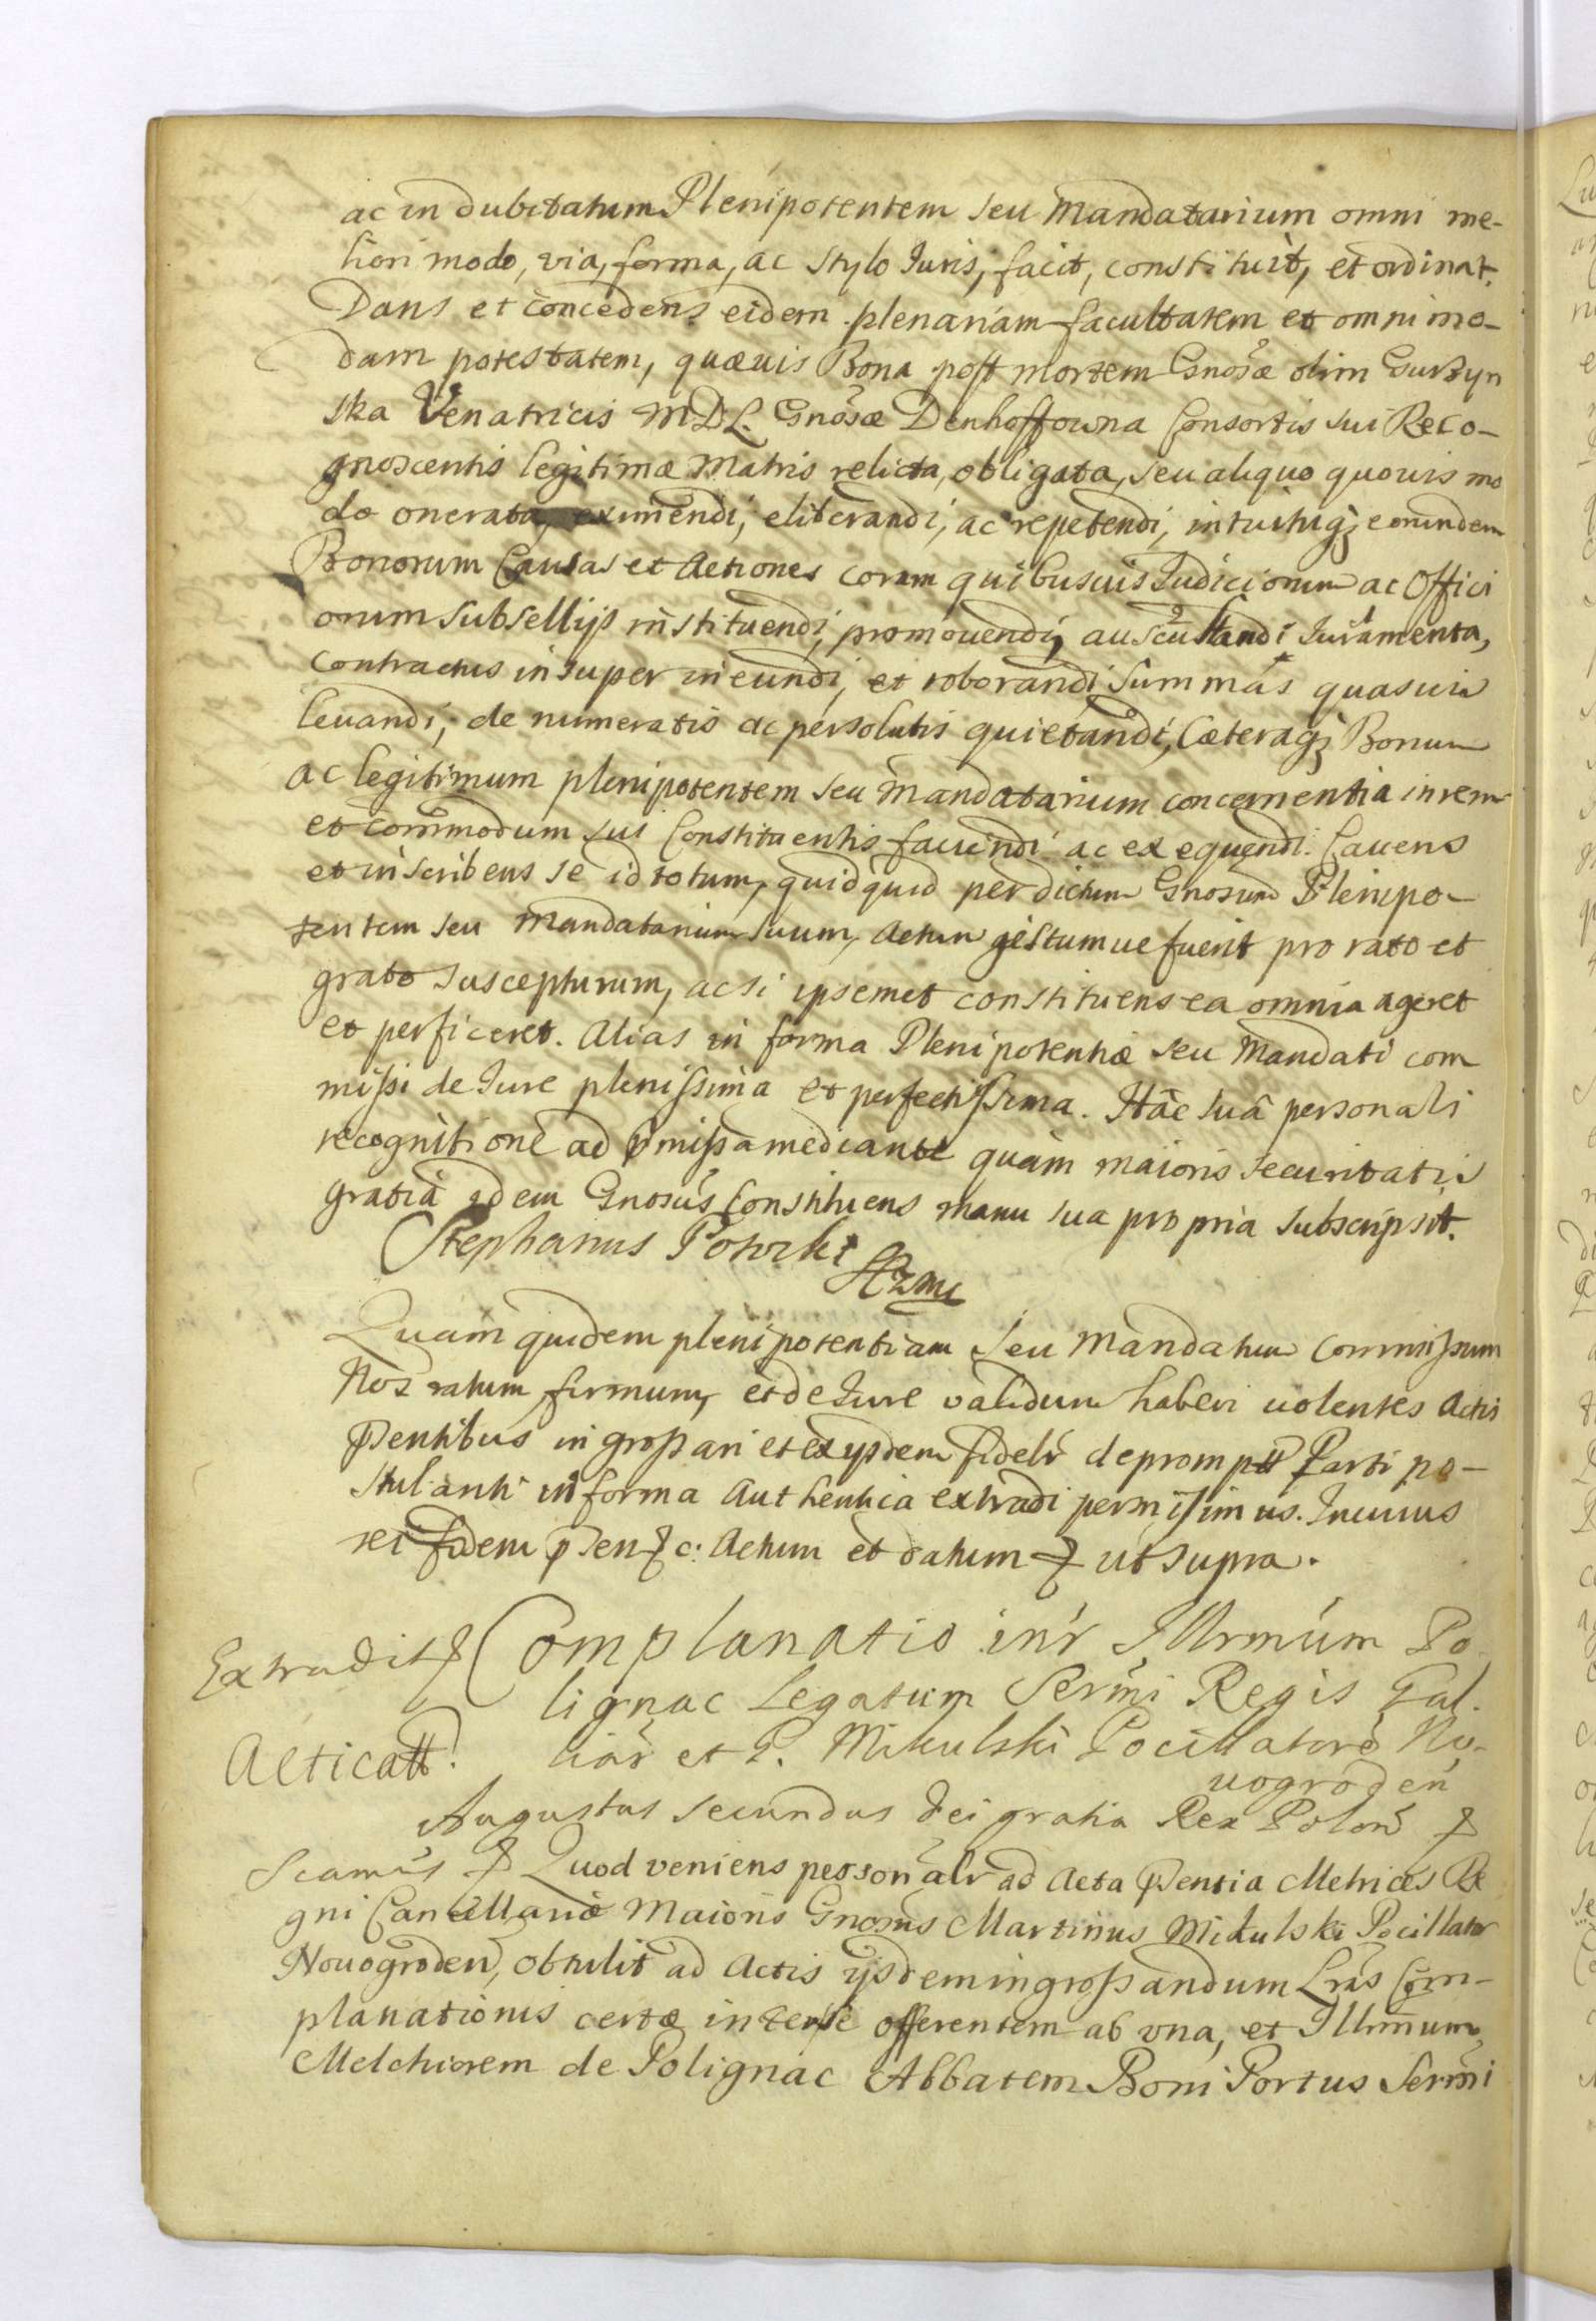 ac indubitatum Plenipotentem seu Mandatarium omni me-
liori modo, via, forma, ac stylo Iuris, facit, constituit, et ordinat.
Dans et concedens eidem plenariam facultatem et omnimo-
dam potestatem, quævis Bona post mortem Gnosæ olim Gurzyn
ska Venatricis MDL. Gnosæ Denhoffowna Consortis sui Reco-
gnoscentis legitimæ Matris relicta, obligata, seu aliquo quovis mo
do onerata, eximendi, eliberandi, ac repetendi, intuituq; eorundem
Bonorum Causas et Actiones coram quibusvis Iudiciorum ac Offici
orum Subsellijs instituendi, promovendi, auscultandi Iuramenta,
Contractus insuper ineundi, et roborandi Summas quasvis
levandi, de numeratis ac persolutis quietandi, Cæteraq; Bonum
ac legitimum plenipotentem seu Mandatarium concernentia in rem
et commodum sui Constituentis faciendi ac exequendi. Cavens
et inscribens se id totum, quidquid per dictum Gnosum Plenipo-
tentem seu Mandatarium suum, Actum gestumve fuerit pro rato et
grato suscepturum, ac si ipsemet constituens ea omnia ageret
et perficeret. Alias in forma Plenipotentiæ seu Mandati com
missi de Iure plenissima et perfectissima. Hâc suâ personali
recognitione ad pmissa mediante quàm maioris securitatis
gratia idem Gnosus Constituens manu sua propria subscripsit.
Stephanus Potocki
Quam quidem plenipotentiam seu Mandatum Commissum
Nos ratum firmum, et de Iure validum haberi volentes Actis
pntibus ingrossari et ex ijsdem fidelr depromptt Parti po-
stulanti in forma Authentica extradi permisimus. In cuius
rei fidem psen &c: Actum et datum & ut supra.
Extradit & Complanatio intr Illrmum Po
lignac Legatum Sermi Regis Gal.
Acticatt. liar et G. Mikulski Pocillatore No-
vogroden
Augustus secundus Dei gratia Rex Polon &
Scamus & Quod veniens personalr ad Acta psentia Metrices Re
gni Cancellariæ Maioris Gnosus Martinus Mikulski Pocillator
Novogroden, obtulit ad Actis ijsdem ingrossandum Lras Com-
planationis certæ inter se offerentem ab una, et Illrmum
Melchiorem de Polignac Abbatem Boni Portus Sermi